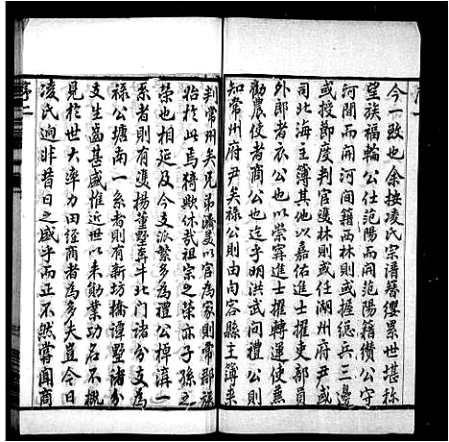 今一致也余按凌氏宗譜簪纓累世堪稱
望族福輪公仕范陽而開范陽籍儹公守
河間而開河間籍西林則或握總兵三邊
或授節度判官邊林則或任湖州府尹或
司北海主簿其他以嘉佑進士擢吏部員
外郎者衣公也以崇寧進士擢轉運使兼
勸農使者商公也迄乎明洪武間禮公則
知常州府尹矣祿公則由內容縣主簿來
判常州矣兄弟濟美以官為家則常郡籍
始於此焉猗歟休哉祖宗之榮亦子孫之
榮也相延及今支派繁多為禮公梓滇一
系者則有護楊董墅奔牛北門諸分支為
祿公塘南一系者則有新坊橋譚墅諸分
支生齒甚盛惟近世以來勛業功名不概
見於世大率力田經商者為多夫豈今日
凌氏迥非昔日之盛乎而正不然嘗聞商
序二